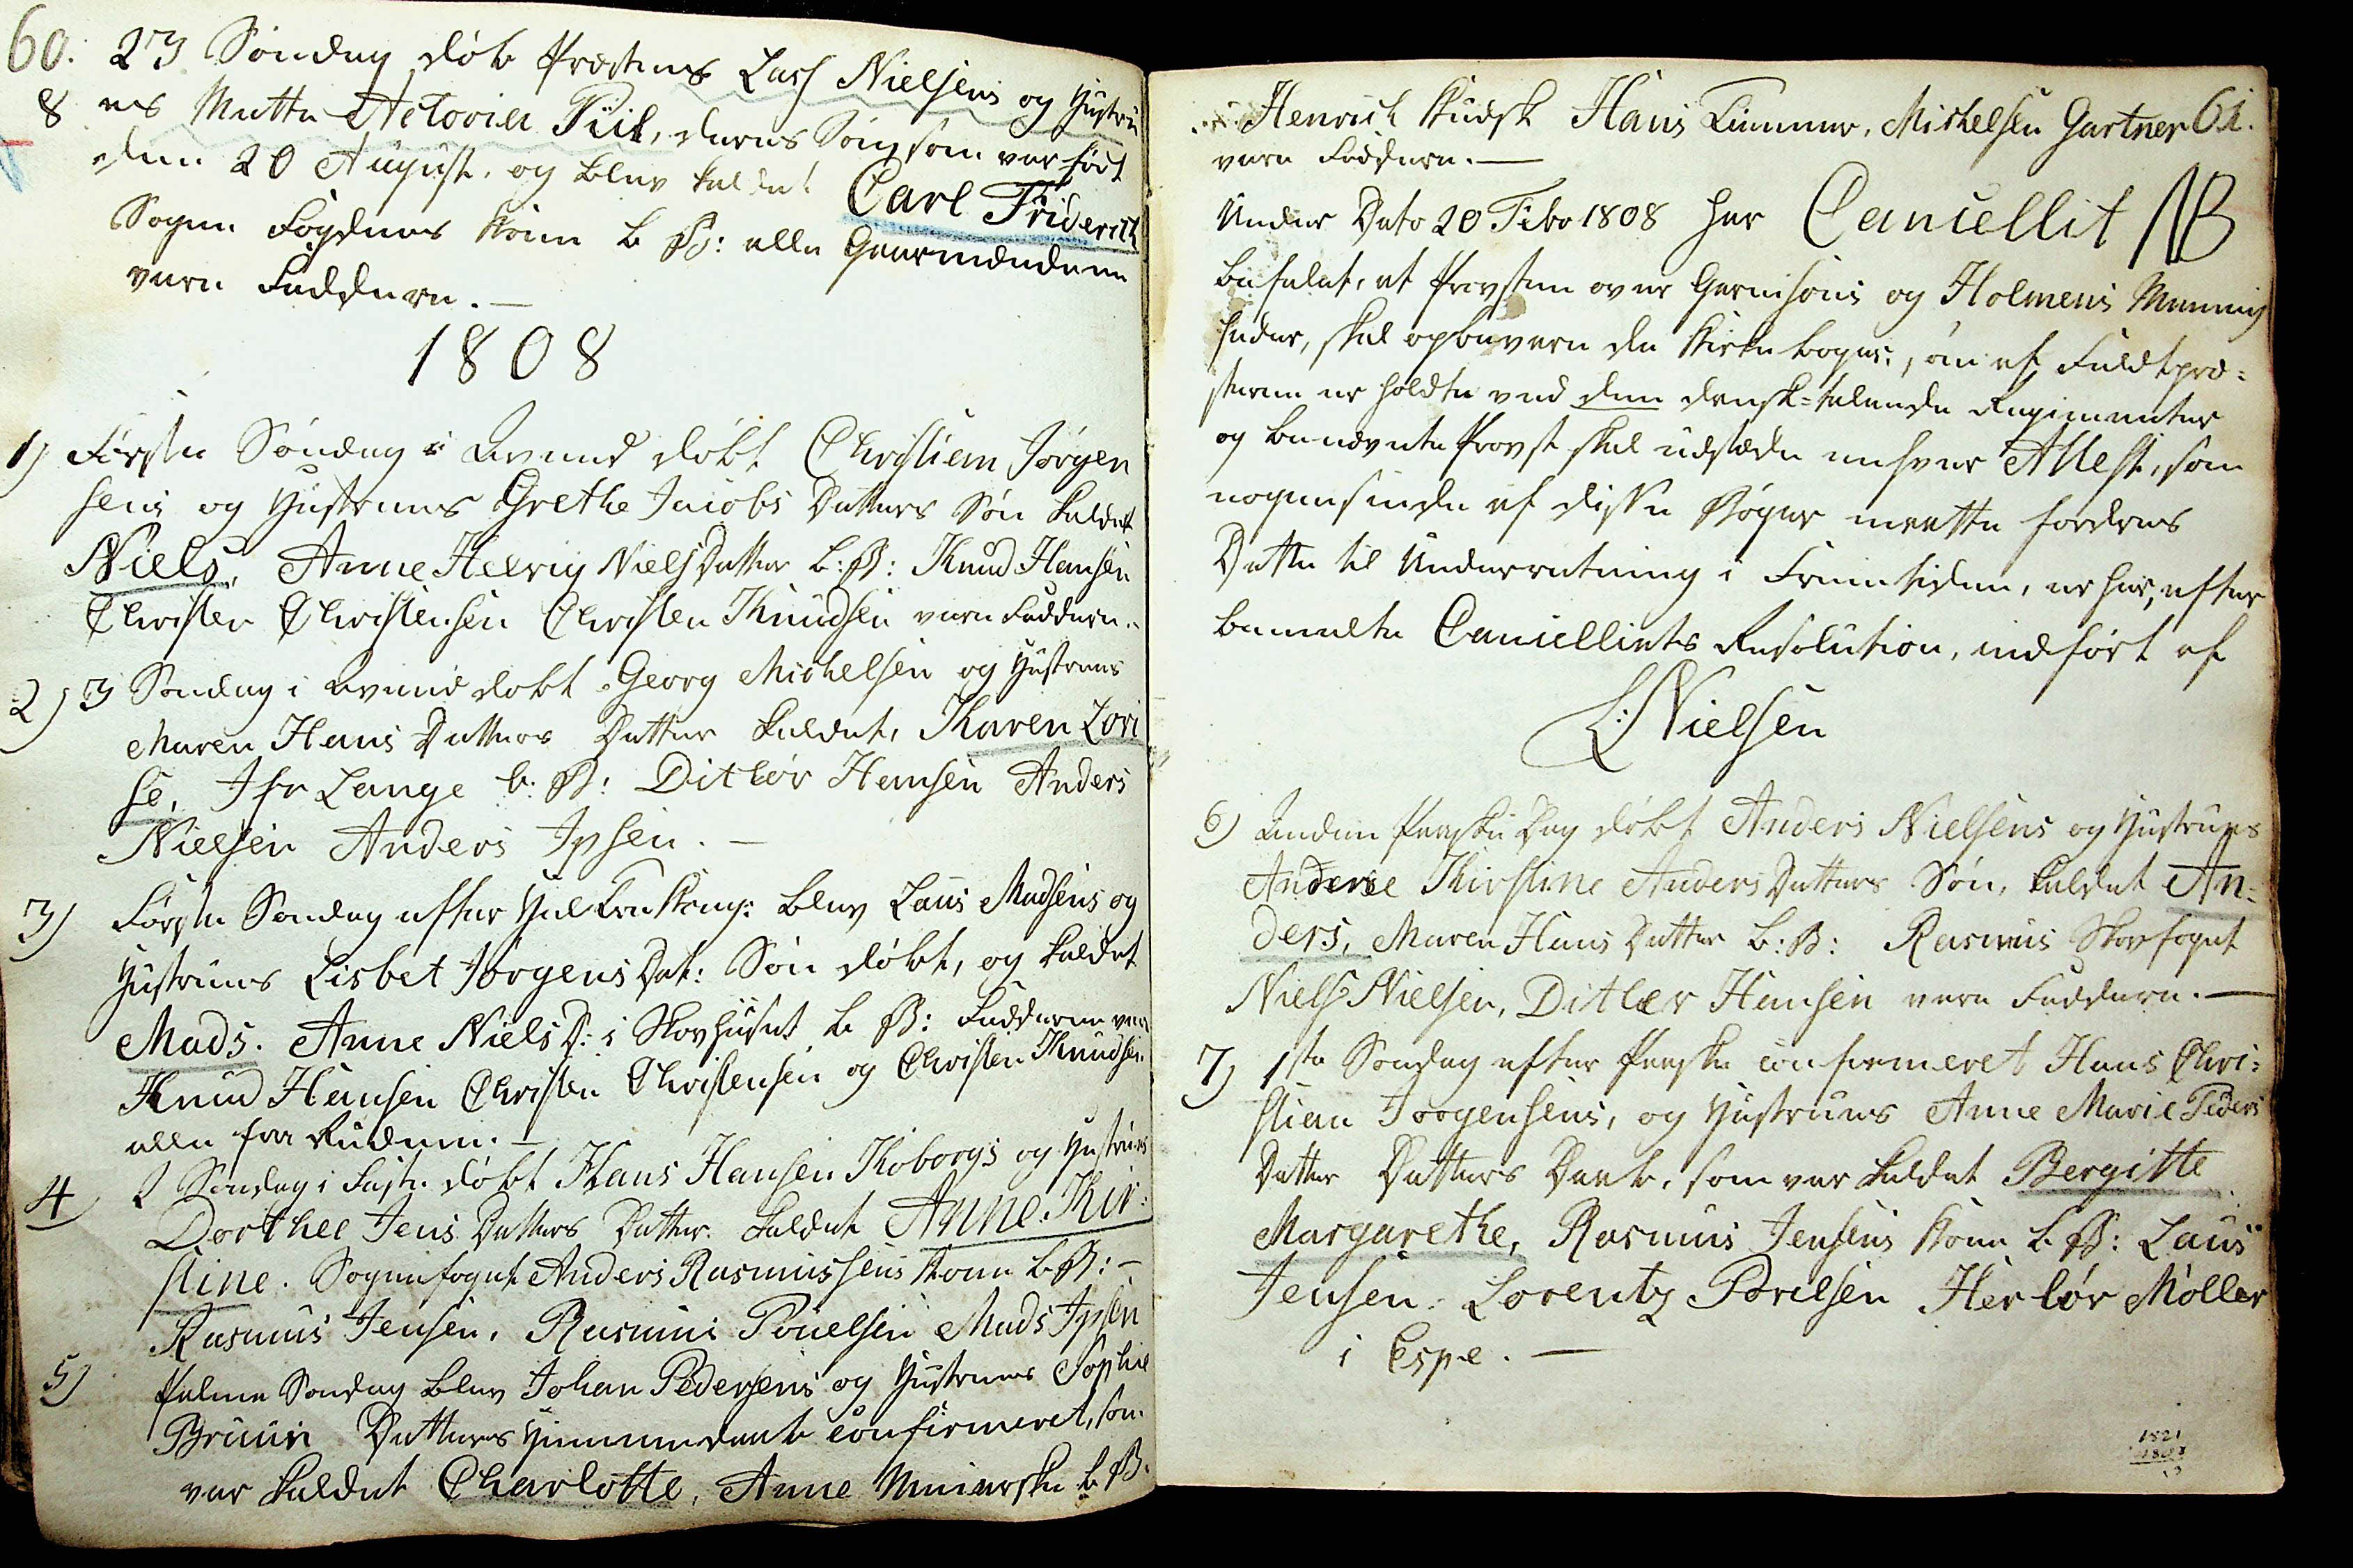 60. 23 Søndag døbt Præstens Lars Nielsens og Hustru
8 es Mette Hetovica Piil, deres Søn som var født
den 20 August, og blev kaldet Carl Friderich
Sogne Fogdens Kone b. B: alle Gaarmændene
vare Faddere. —
1808
1) Første Søndag i Advend døbt Christiern Jørgen
sens og Hustrues Grethe Jacobs Datters Søn kaldet
Niels, Anne Helvig Niels Datter b: B: Knud Hansen
Christen Christensen Christen Knudsen vare Faddere.
2) 3 Søndag i Advend døbt Georg Michelsen og Hustrues
Maren Hans Datters Datter kaldet, Karen Lovi
se, Jfr Lange b: B: Ditlev Hansen Anders
Nielsen Anders Ipsen. —
3) Første Søndag efter Hel. Tre Kong: blev Laus Madsens og
Hustrues Lisbet Jørgens Dat: Søn døbt, og kaldet
Mads. Anne Niels D: i Skovhuset b B: Fadderne vare
Knud Hansen Christen Christensen og Christen Knudsen
alle fra Ruden. —
4) 2 Søndag i Faste døbt Hans Hansen Koborgs og Hustrues
Dorthee Jens Datters Datter kaldet Anne Kir:
stine. Sognefoget Anders Rasmussens Kone b. B: —
Rasmus Jensen, Rasmus Pouelsen Mads Ipsen
5) Palme Søndag blev Johan Pedersens og Hustrues Sophie
Bruun Datters Hiemmedaab confirmeret, som
var kaldet Charlotte, Anne b. B.
Henrich Kudsk Hans Timmer, Michelsen Gartner 61.
vare Faddere. —
Under Dato 20 Febr 1808 har Cancellit NB
befalet, at Provsten over Garnisons og Holmens Mennig
heder, skal opbevare de Kirkebøger, som af Feldtpræ=
sterne er holdte ved den dansk=talende Regimenter
og benævnte Provst skal udstæde enhver Attest, som
nogensinde af disse Bøger maatte fordres
Dette til Underretning i Fremtiden, er her, efter
bemelte Cancelliets Resolution, indført af
L: Nielsen
6) Anden Paaske Dag døbt Anders Nielsens og Hustrues
Anderse Kirstine Anders Datters Søn, kaldet An=
ders, Maren Hans Datter b: B: Rasmus Skovfoget
Niels Nielsen, Ditlev Hansen vare Faddere. —
7) 1ste Søndag efter Paaske confirmeret Hans Chri=
stian Jørgensens, og Hustrues Anne Marie Peders
Datter Datters Daab, som var kaldet Bergitte
Margarethe, Rasmus Jensens Kone b. B: Laus
Jensen. Lorentz Povelsen Herløv Møller
i Espe. —
1821
1808
13